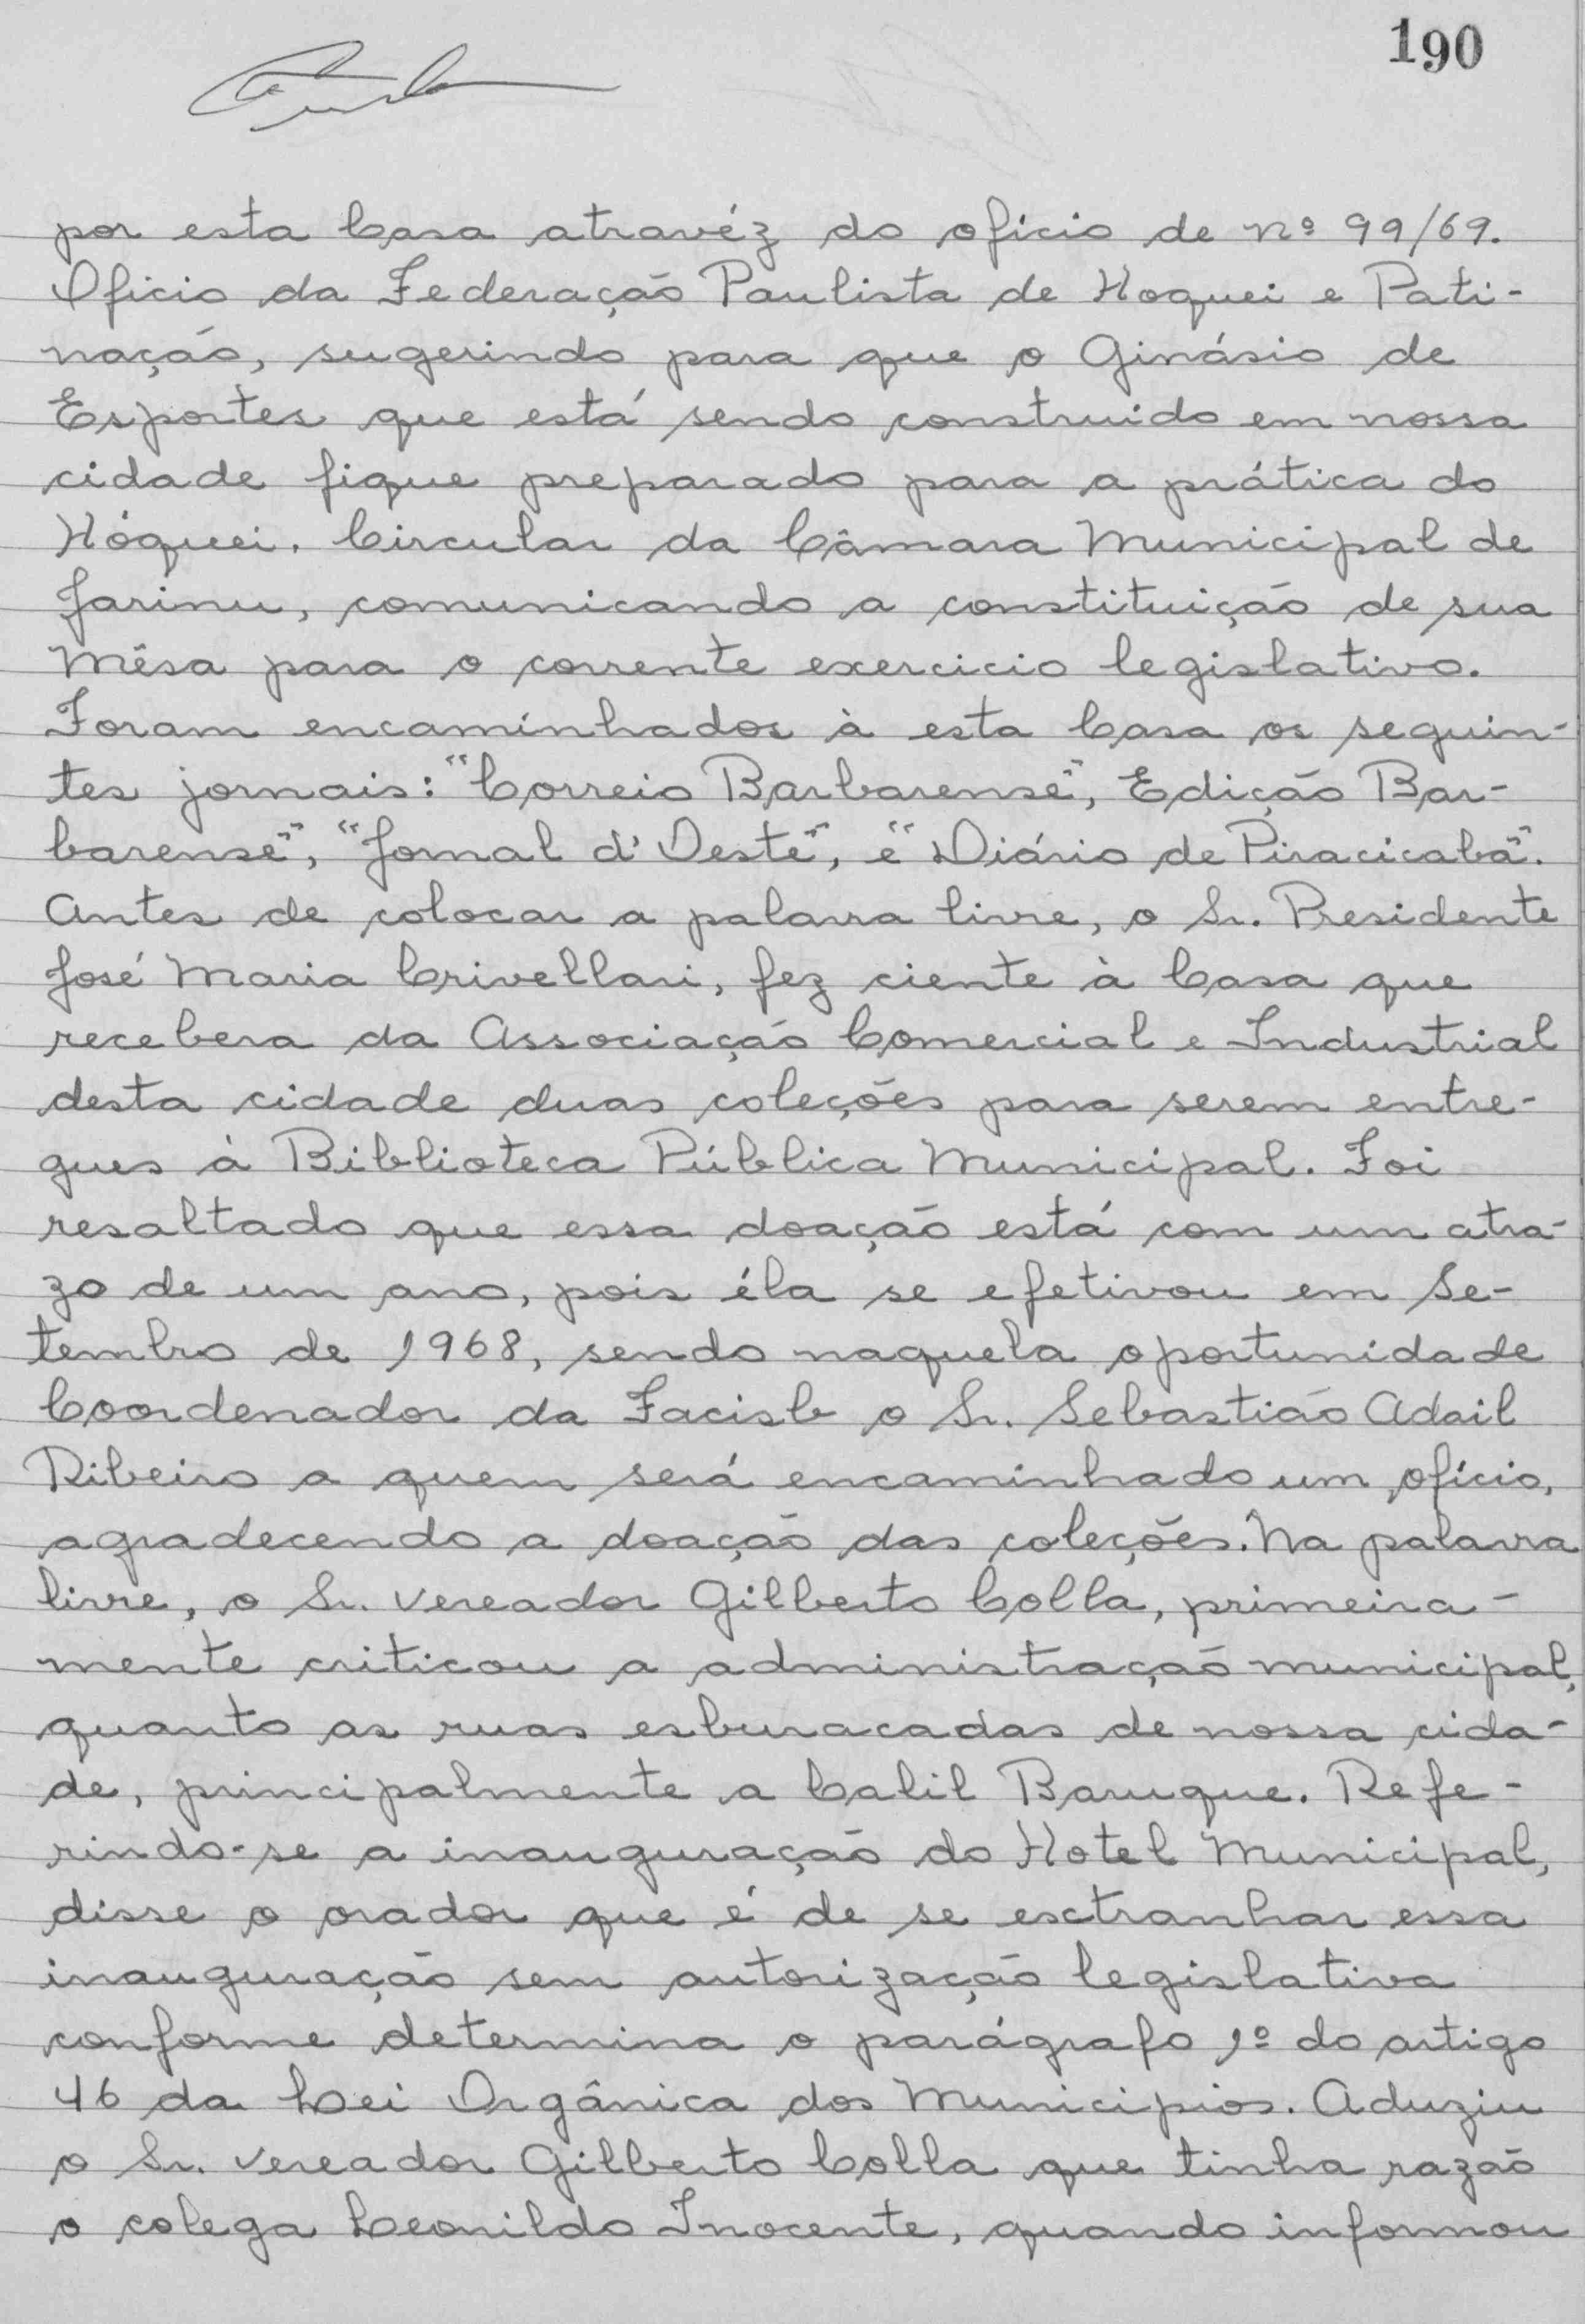 190
por esta Casa atravéz do ofício de nº 99/69.
Oficio da Federação Paulista de Hoquei e Pati-
nação, sugerindo para que o Ginásio de
Esportes que está sendo construido em nossa
cidade fique preparado para a prática do
Hóquei. Circular da Câmara Municipal de
Jarinu, comunicando a constituição de sua
Mêsa para o corrente exercicio legislativo.
Foram encaminhados à esta Casa os seguin-
tes jornais: "Correio Barbarense", Edição Bar-
barense", "Jornal d'Oeste", e "Diário de Piracicaba".
Antes de colocar a palavra livre, o Sr. Presidente
José Maria Crivellari, fez ciente à Casa que
recebera da Associação Comercial e Industrial
desta cidade duas coleções para serem entre-
gues à Biblioteca Pública Municipal. Foi
resaltado que essa doação está com um atra-
zo de um ano, pois éla se efetivou em Se-
tembro de 1968, sendo naquela oportunidade
Coordenador da Facisb o Sr. Sebastião Adail
Ribeiro a quem será encaminhado um ofício,
agradecendo a doação das coleções. Na palavra
livre, o Sr. Vereador Gilberto Colla, primeira-
mente criticou a administração municipal,
quanto as ruas esburacadas de nossa cida-
de, principalmente a Calil Baruque. Refe-
rindo-se a inauguração do Hotel Municipal,
disse o orador que é de se extranhar essa
inauguração sem autorização legislativa
conforme determina o parágrafo 1º do artigo
46 da Lei Orgânica dos Municipios. Aduziu
o Sr. Vereador Gilberto Colla que tinha razão
o colega Leonildo Inocente, quando informou